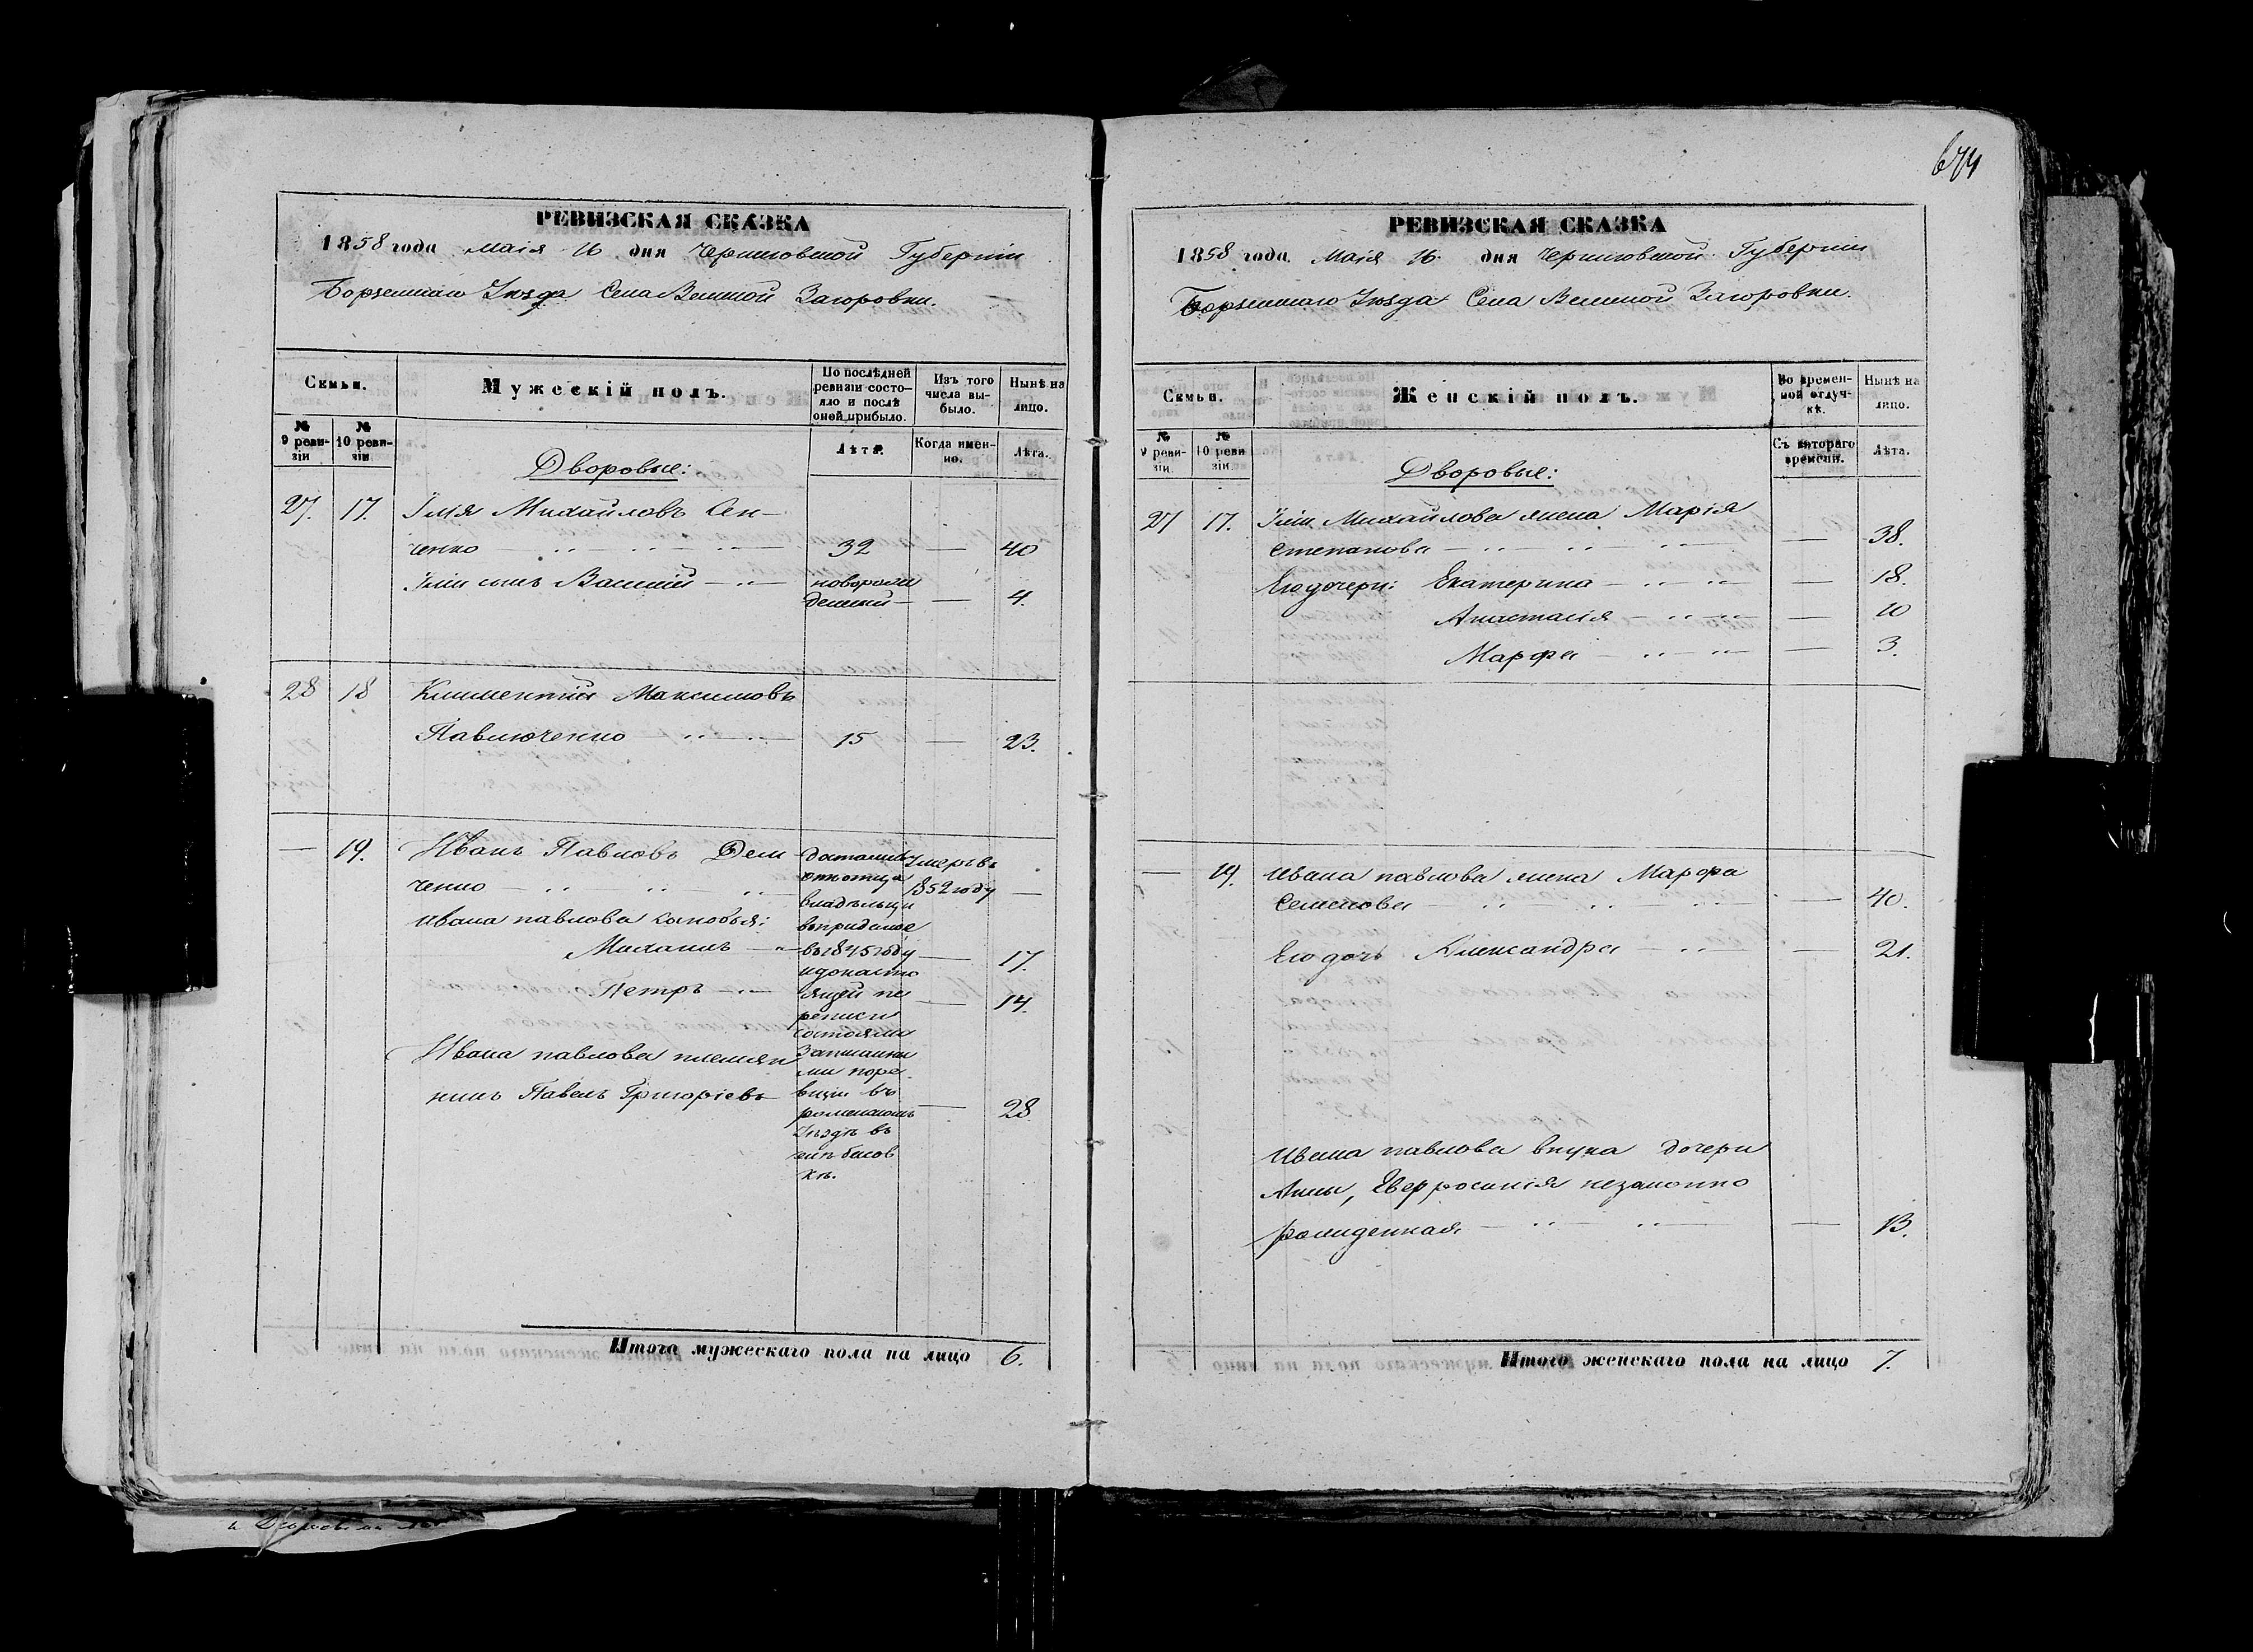 674
РЕВИЗСКАЯ СКАЗКА
1858 года Маія 16 дня Черниговской Губерніи
Борзенскаго Уѣзда Села Великой Загоровки.
Семьи.
Мужескій полъ.
По послѣдней ревизіи состо-
яло и послѣ
оной прибыло.
Изъ того
числа вы-
было.
Нынѣ на
лицо.
№
9 реви-
зіи
№
10 реви-
зіи
Лѣта.
Когда имен-
но.
Лѣта.
Дворовые:
27. 17. Илія Михайловъ Сен-
ченко 32 — 40
Иліи сынъ Василій новорож
денный — 4.
28 18 Климентій Максимовъ
Павлюченко 15 — 23.
— 19. Иванъ Павловъ Дем
ченко —
Достались
отъ отца
владѣльцы
въ приданое
въ 1845 году
и до насто
ящей пе
реписи
состояли
записаны
ми по ре
визіи въ
роменскомъ
Уѣздѣ въ
басов
кѣ.
Умеръ въ
1852 году
Ивана Павлова сыновья:
Михаилъ — 17.
Петръ — 14.
Ивана павлова племян
никъ Павелъ Григоріевъ — 28
Итого мужескаго пола на лицо 6.
РЕВИЗСКАЯ СКАЗКА
1858 года Маія 16. дня Черниговской Губерніи
Борзенскаго Уѣзда Села Великой Загоровки.
Семьи.
Женскій полъ.
Во времен-
ной отлуч-
кѣ.
Нынѣ на
лицо.
№
9 реви-
зіи.
№
10 реви
зіи.
Съ котораго
времени.
Лѣта.
Дворовые:
27 17. Иліи Михайлова жена Марія
Степанова — 38.
Его дочери: Екатерина — 18.
Анастасія — 10
Марфа — 3.
— 19. Ивана павлова жена Марфа
Семенова — 40.
Его дочь Александра — 21.
Ивана павлова внука дочери
Анны, Евфросинія незаконно
рожденная — 13.
Итого женскаго пола на лицо 7.